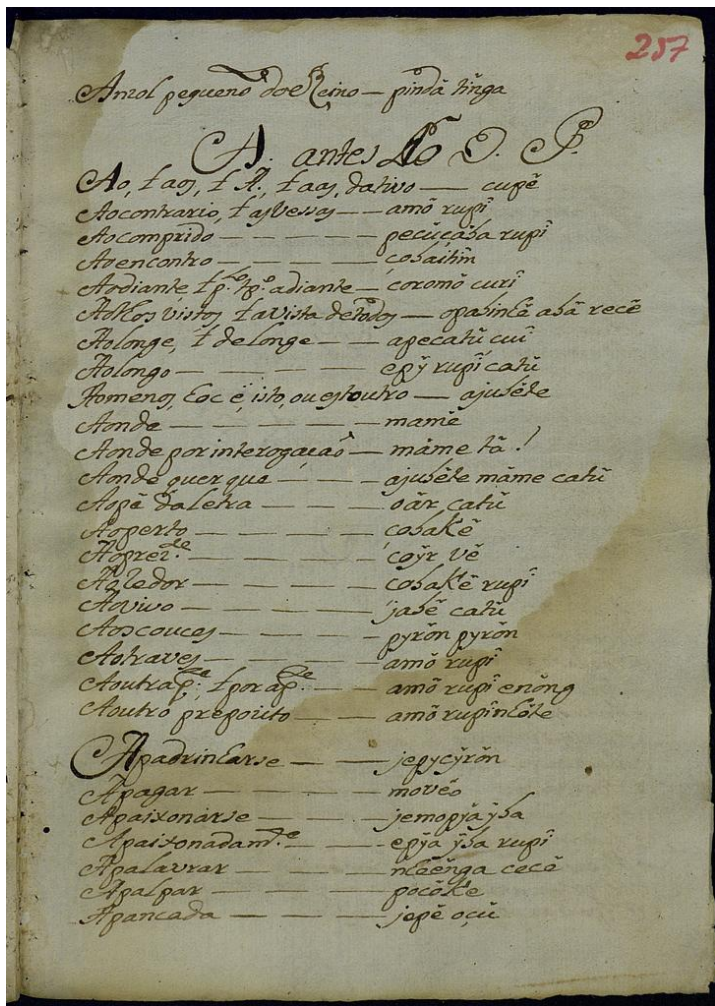 257
Anzol pequeno do Reino — pindã tinga
A. antes do O. P.
Ao, ł aos, ł A., ł aas, dativo — cupẽ
Ao contrario, ł as vessas — — amõ rupĩ
Ao comprido — — — — pecuçába rupĩ
Ao encontro — — — — çobáitĩm
Ao diante ł p.lo tp.o adiante — coromõ curĩ
vistos, ł a vista de todos — opabinhẽ abã recẽ
Ao longe, ł de longe — — apecatũ cuĩ
Ao longo — — — — — epỹ rupĩ catũ
Ao menos, hoc ẽ, isto, ou estoutro — ajubẽte
Aonde — — — — — mamẽ
Aonde por interogaçaõ — máme tã?
Aonde quer que — — — ajubẽte máme catũ
Ao pẽ da letra — — — oár catũ
Ao perto — — — — — çobakẽ
Ao prez.te — — — — — coỹr vẽ
Ao redor — — — — — çobakẽ rupĩ
Ao vivo — — — — — jabẽ catũ
Aos couces — — — — pyrõn pyrõn
Ao traves — — — — — amõ rupĩ
Ao outra p.te, ł por a p.te — — amõ rupĩ enõng
Ao outro preposito — — amõ rupĩ nhõte
Apadrinharse — — — jepycỹrõn
Apagar — — — — — movéo
Apaixonarse — — — — jemopỹa ỹba
Apaixonadam.te — — — epỹa ỹba rupĩ
Apalavrar — — — — nheẽnga cecẽ
Apalpar — — — — — pocõke
Apancada — — — — jepẽ oçũ